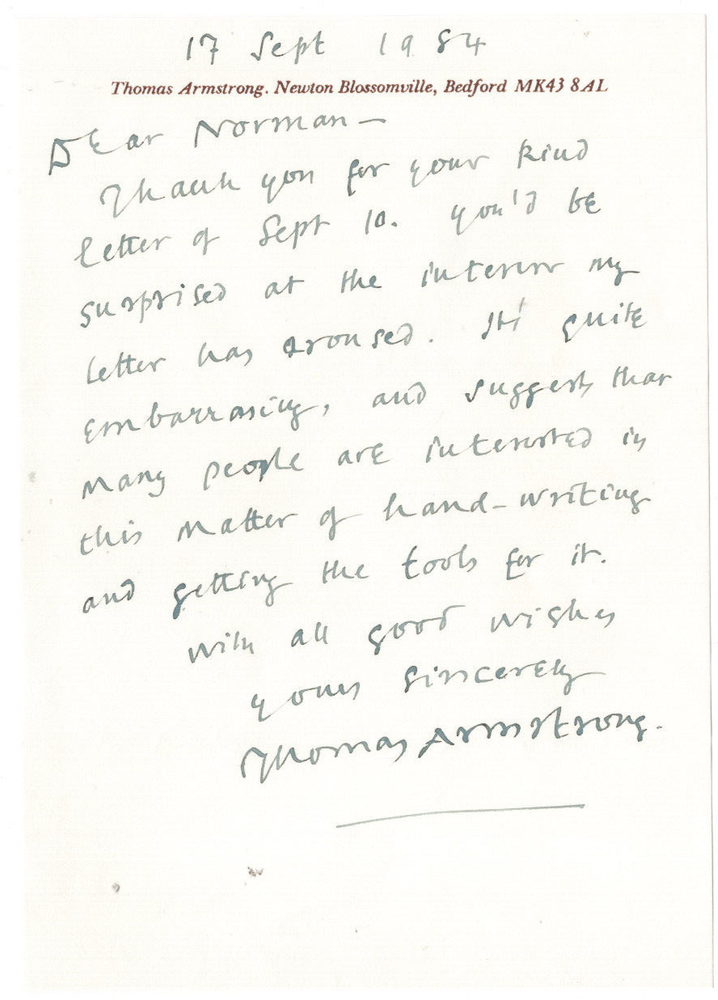 17 Sept 1984
Thomas Armstrong. Newton Blossomville, Bedford MK43 8AL
Dear Norman—
Thank you for your kind
letter of Sept 10. you'd be
surprised at the interest my
letter has aroused. It's quite
embarrasing, and suggests that
many people are interested in
this matter of hand-writing
and getting the tools for it.
With all good wishes
yours sincerely
Thomas Armstrong.